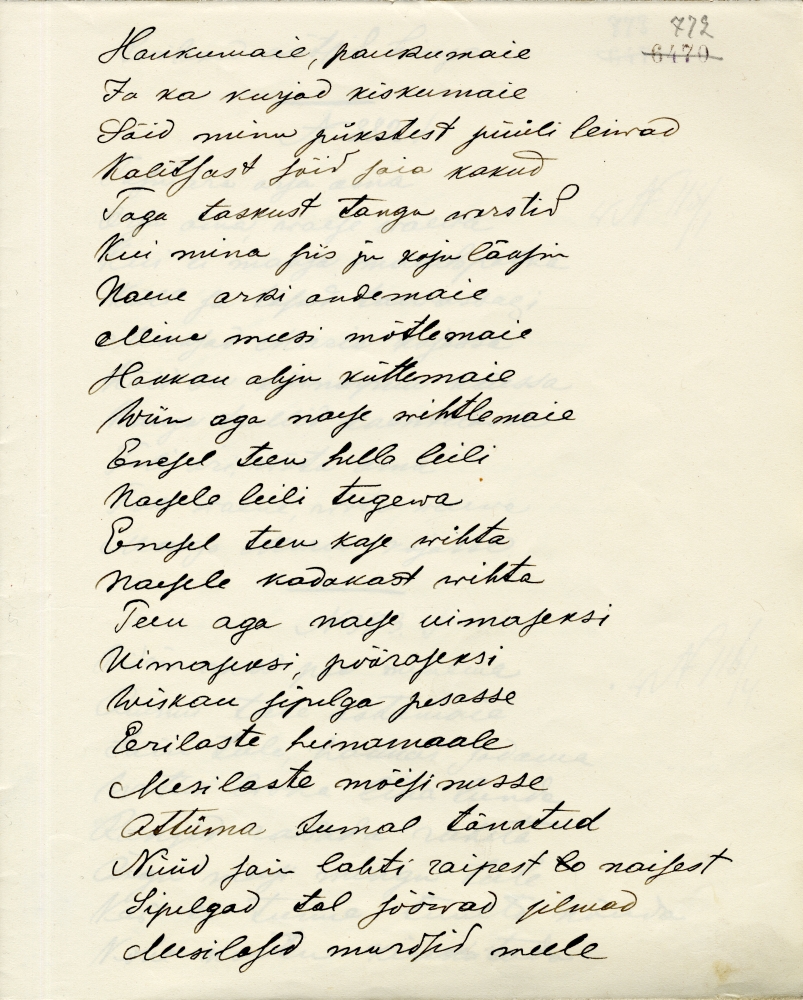 772
6470
Haukumaie, paukumaie
Ja ka kurjad kiskumaie
Sõid minu pükstest püüli leiwad
Kalitsast sõid saia kakud
Taga taskust tangu worstid
Kui mina siis ju koju läksin
Naene arki andemaie
Mina meesi mõtlemaie
Hakkan ahju küttemaie
Wiin aga naese wihtlemaie
Enesel teen hella leili
Naesele leili tugewa
Enesel teen kase wihta
Naesele kadakast wihta
Teen aga naese uimaseksi
Uimaseksi, pööraseksi
Wiskan sipelga pesasse
Erilaste heinamaale
Mesilaste mõisinusse
Attüma Jumal tänatud
Nüüd sain lahti raipest naisest
Sipelgad tal sööwad silmad
Mesilased murdsid meele